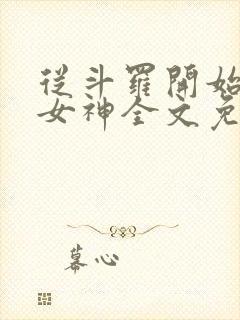 從斗羅開始
女神全文免
幕心